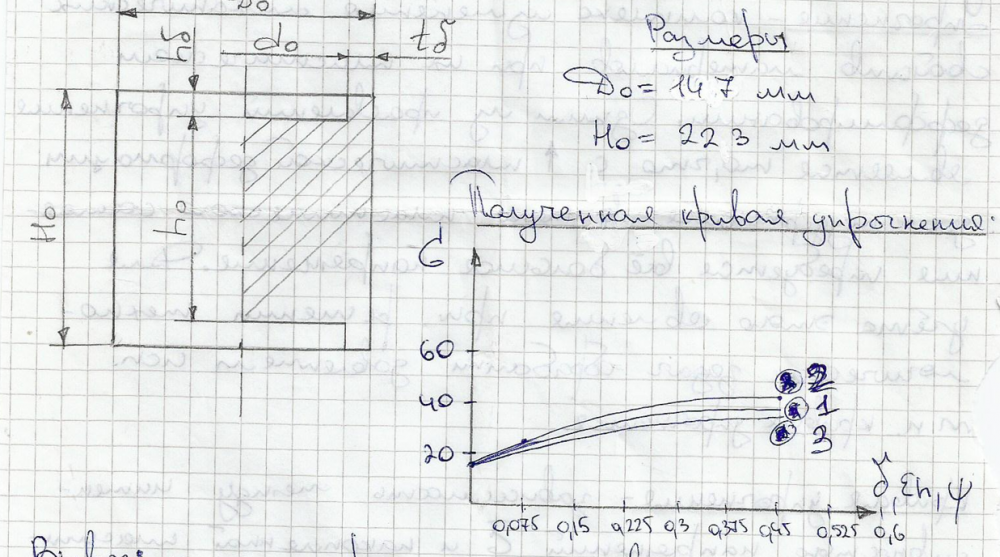 D₀
hδ
d₀
tδ
H₀
h₀
Размеры
D₀ = 147 мм
H₀ = 223 мм
Полученная кривая упрочнения:
б
60
40
20
2
1
3
δ, Eh, ψ
0,075 0,15 0,225 0,3 0,375 0,45 0,525 0,6